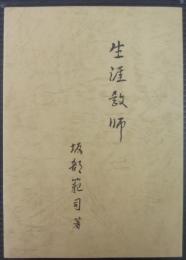 生涯教師
坂部範司著